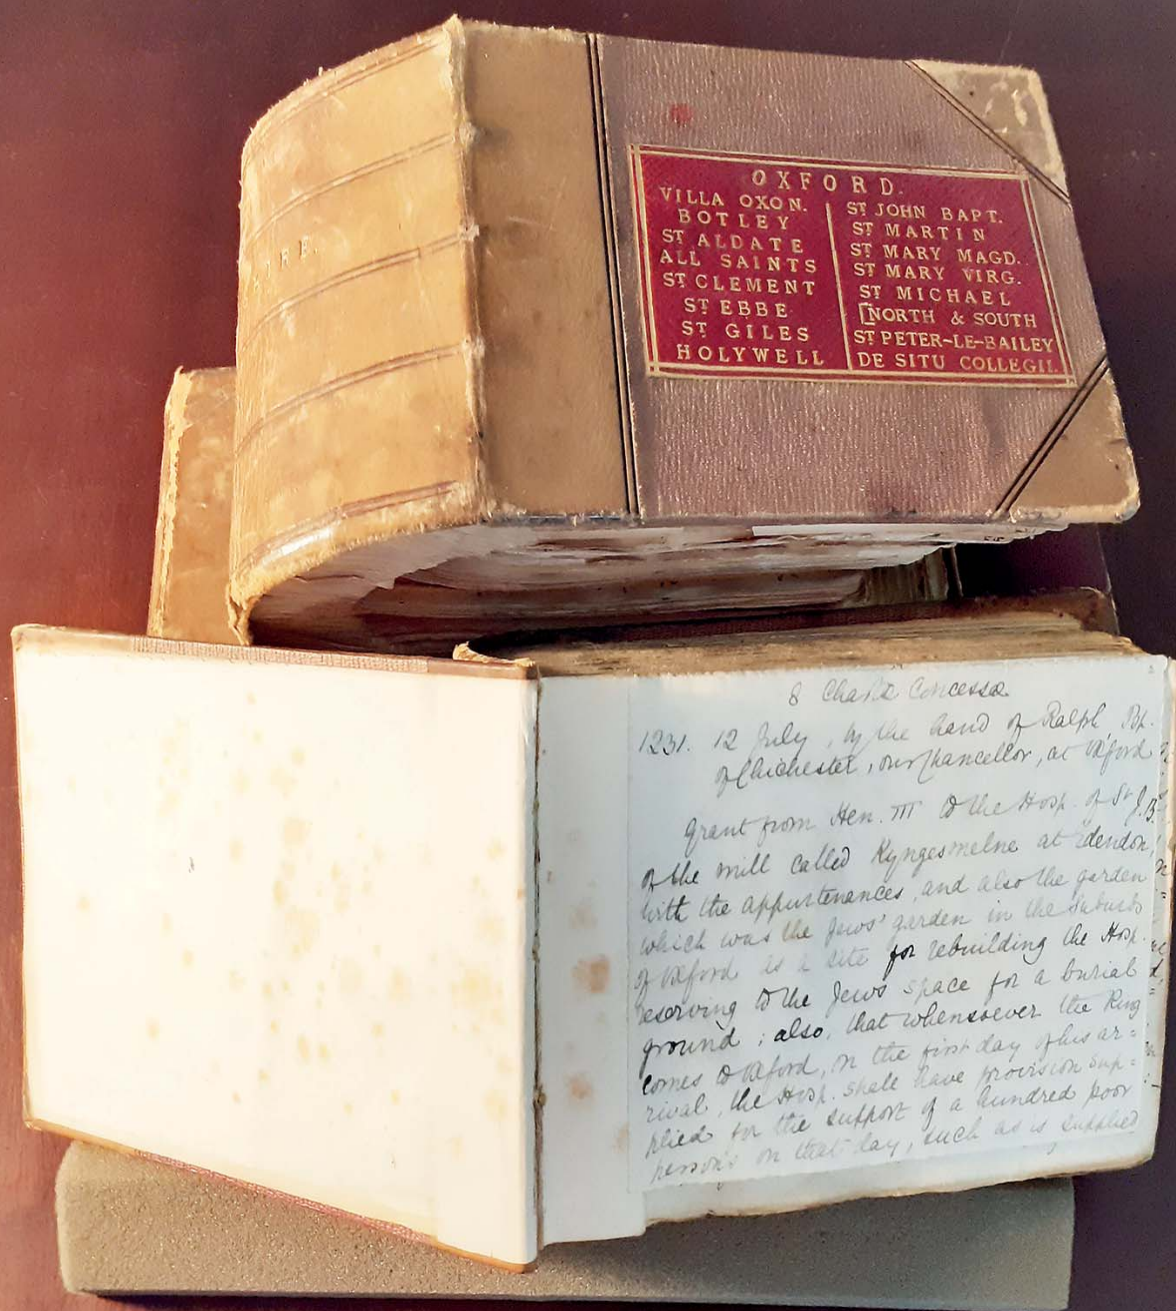 OXFORD.
VILLA OXON.
BOTLEY
ST ALDATE
ALL SAINTS
ST CLEMENT
ST EBBE
ST GILES
HOLYWELL
ST JOHN BAPT.
ST MARTIN
ST MARY MAGD.
ST MARY VIRG.
ST MICHAEL
[NORTH & SOUTH
ST PETER-LE-BAILEY
DE SITU COLLEGII.
8 Charta Concessa
1231. 12 July, by the hand of Ralph, Bp.
of Chichester, our Chancellor, at Oxford
Grant from Hen. III to the Hosp. of St J. B.
of the mill called Kyngesmelne at Edendon,
with the appurtenances, and also the garden
which was the Jews' garden in the suburbs
of Oxford as a site for rebuilding the Hosp.
reserving to the Jews space for a burial
ground; also, that whensoever the King
comes to Oxford, on the first day of his ar=
rival, the Hosp. shall have provision sup=
plied for the support of a hundred poor
persons on that day, such as is supplied